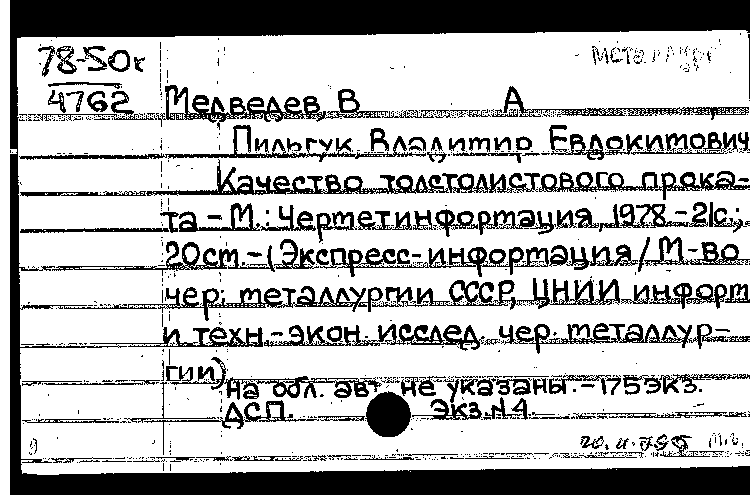 78-50к
4762
Металлург
Медведев, В А
Пильгук, Владимир Евдокимович
Качество толстолистового прока-
та - М.: Черметинформация, 1978 - 21с.;
20см. - (Экспресс-информация / М-во
чер. металлургии СССР, ЦНИИ информ
и техн.-экон. исслед. чер. металлур-
гии)
На обл. авт. не указаны. - 175 экз.
ДСП. Экз. №4.
9